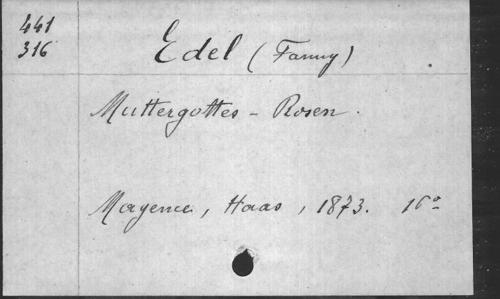 441
316
Edel (Fanny)
Muttergottes - Rosen.
Mayence, Haas, 1873. 16º